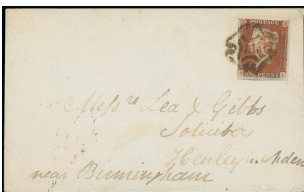 POSTAGE
ONE PENNY
Mess rs Lea & Gibbs
Solicitors
Henley in Arden
near Birmingham